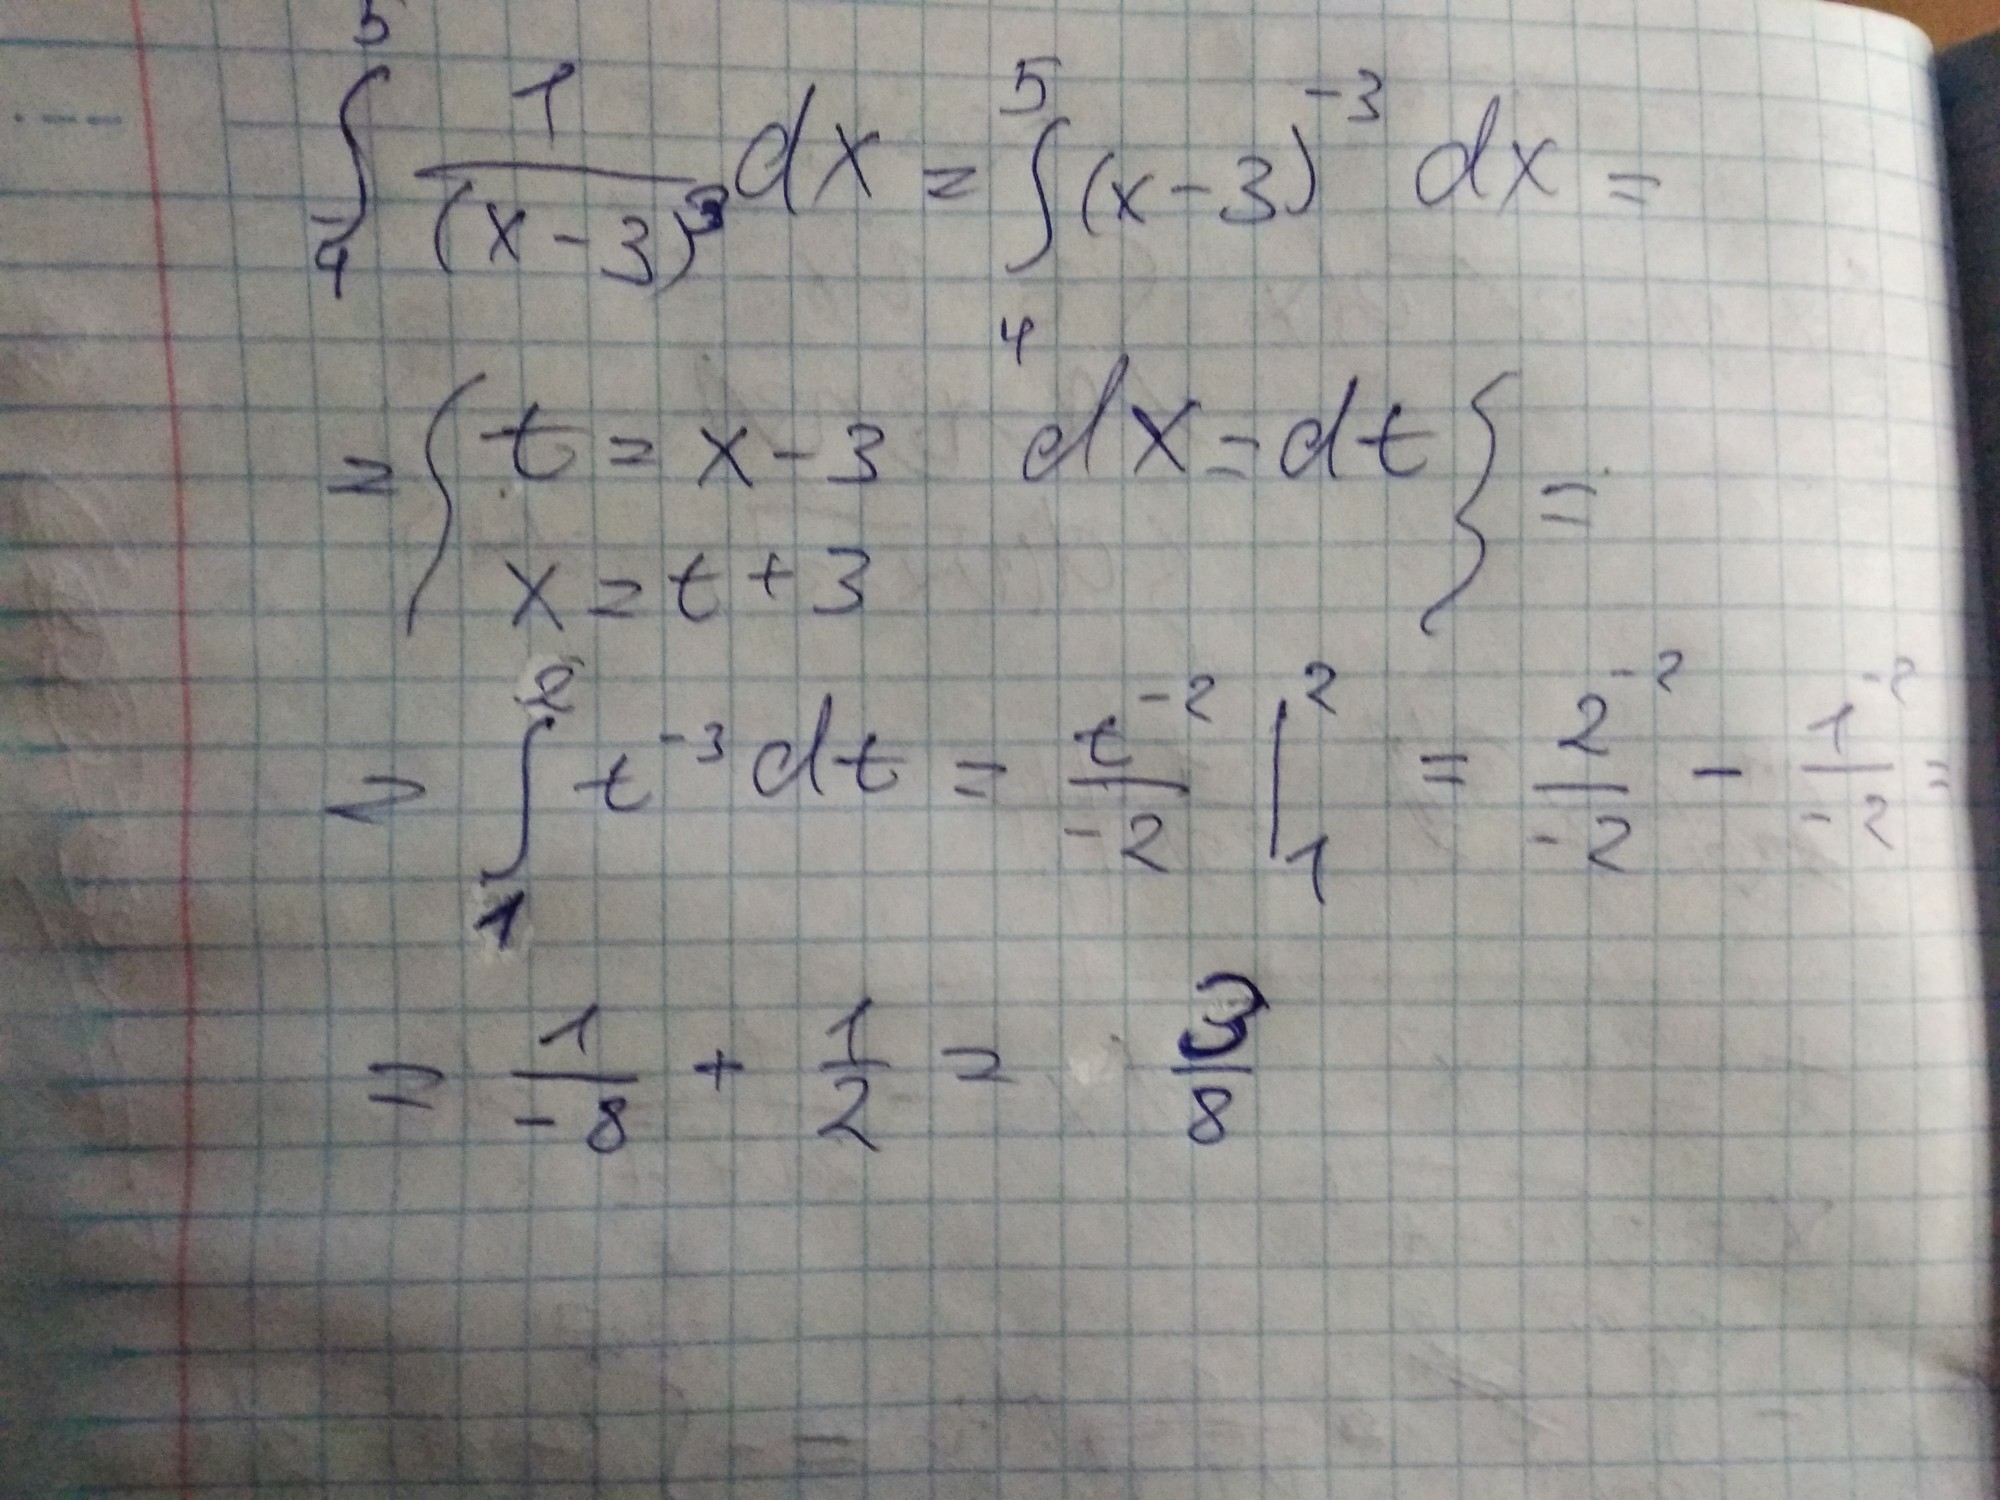 ∫₄⁵ 1/(x-3)³ dx = ∫₄⁵ (x-3)⁻³ dx =
= { t = x-3 dx = dt
x = t+3 } =
= ∫₁² t⁻³ dt = t⁻²/-2 |₁² = 2⁻²/-2 - 1⁻²/-2 =
= 1/-8 + 1/2 = 3/8